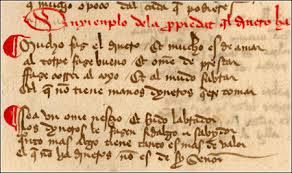 mucho o poco dal cada q podieres
Enxienplo dela ppiedat ql dinero ha
Mucho faz el dinero Et mucho es de amar
al torpe faze bueno Et ome de prestar
faze correr al coxo Et al mudo fablar
el q no tiene manos dyneros qere tomar
Sea vn ome nesçio Et Rudo labrador
los dyneros le fazen fidalgo e sabydor
qnto mas algo tiene tanto es mas de valor
el q no ha dineros no es de sy Señor